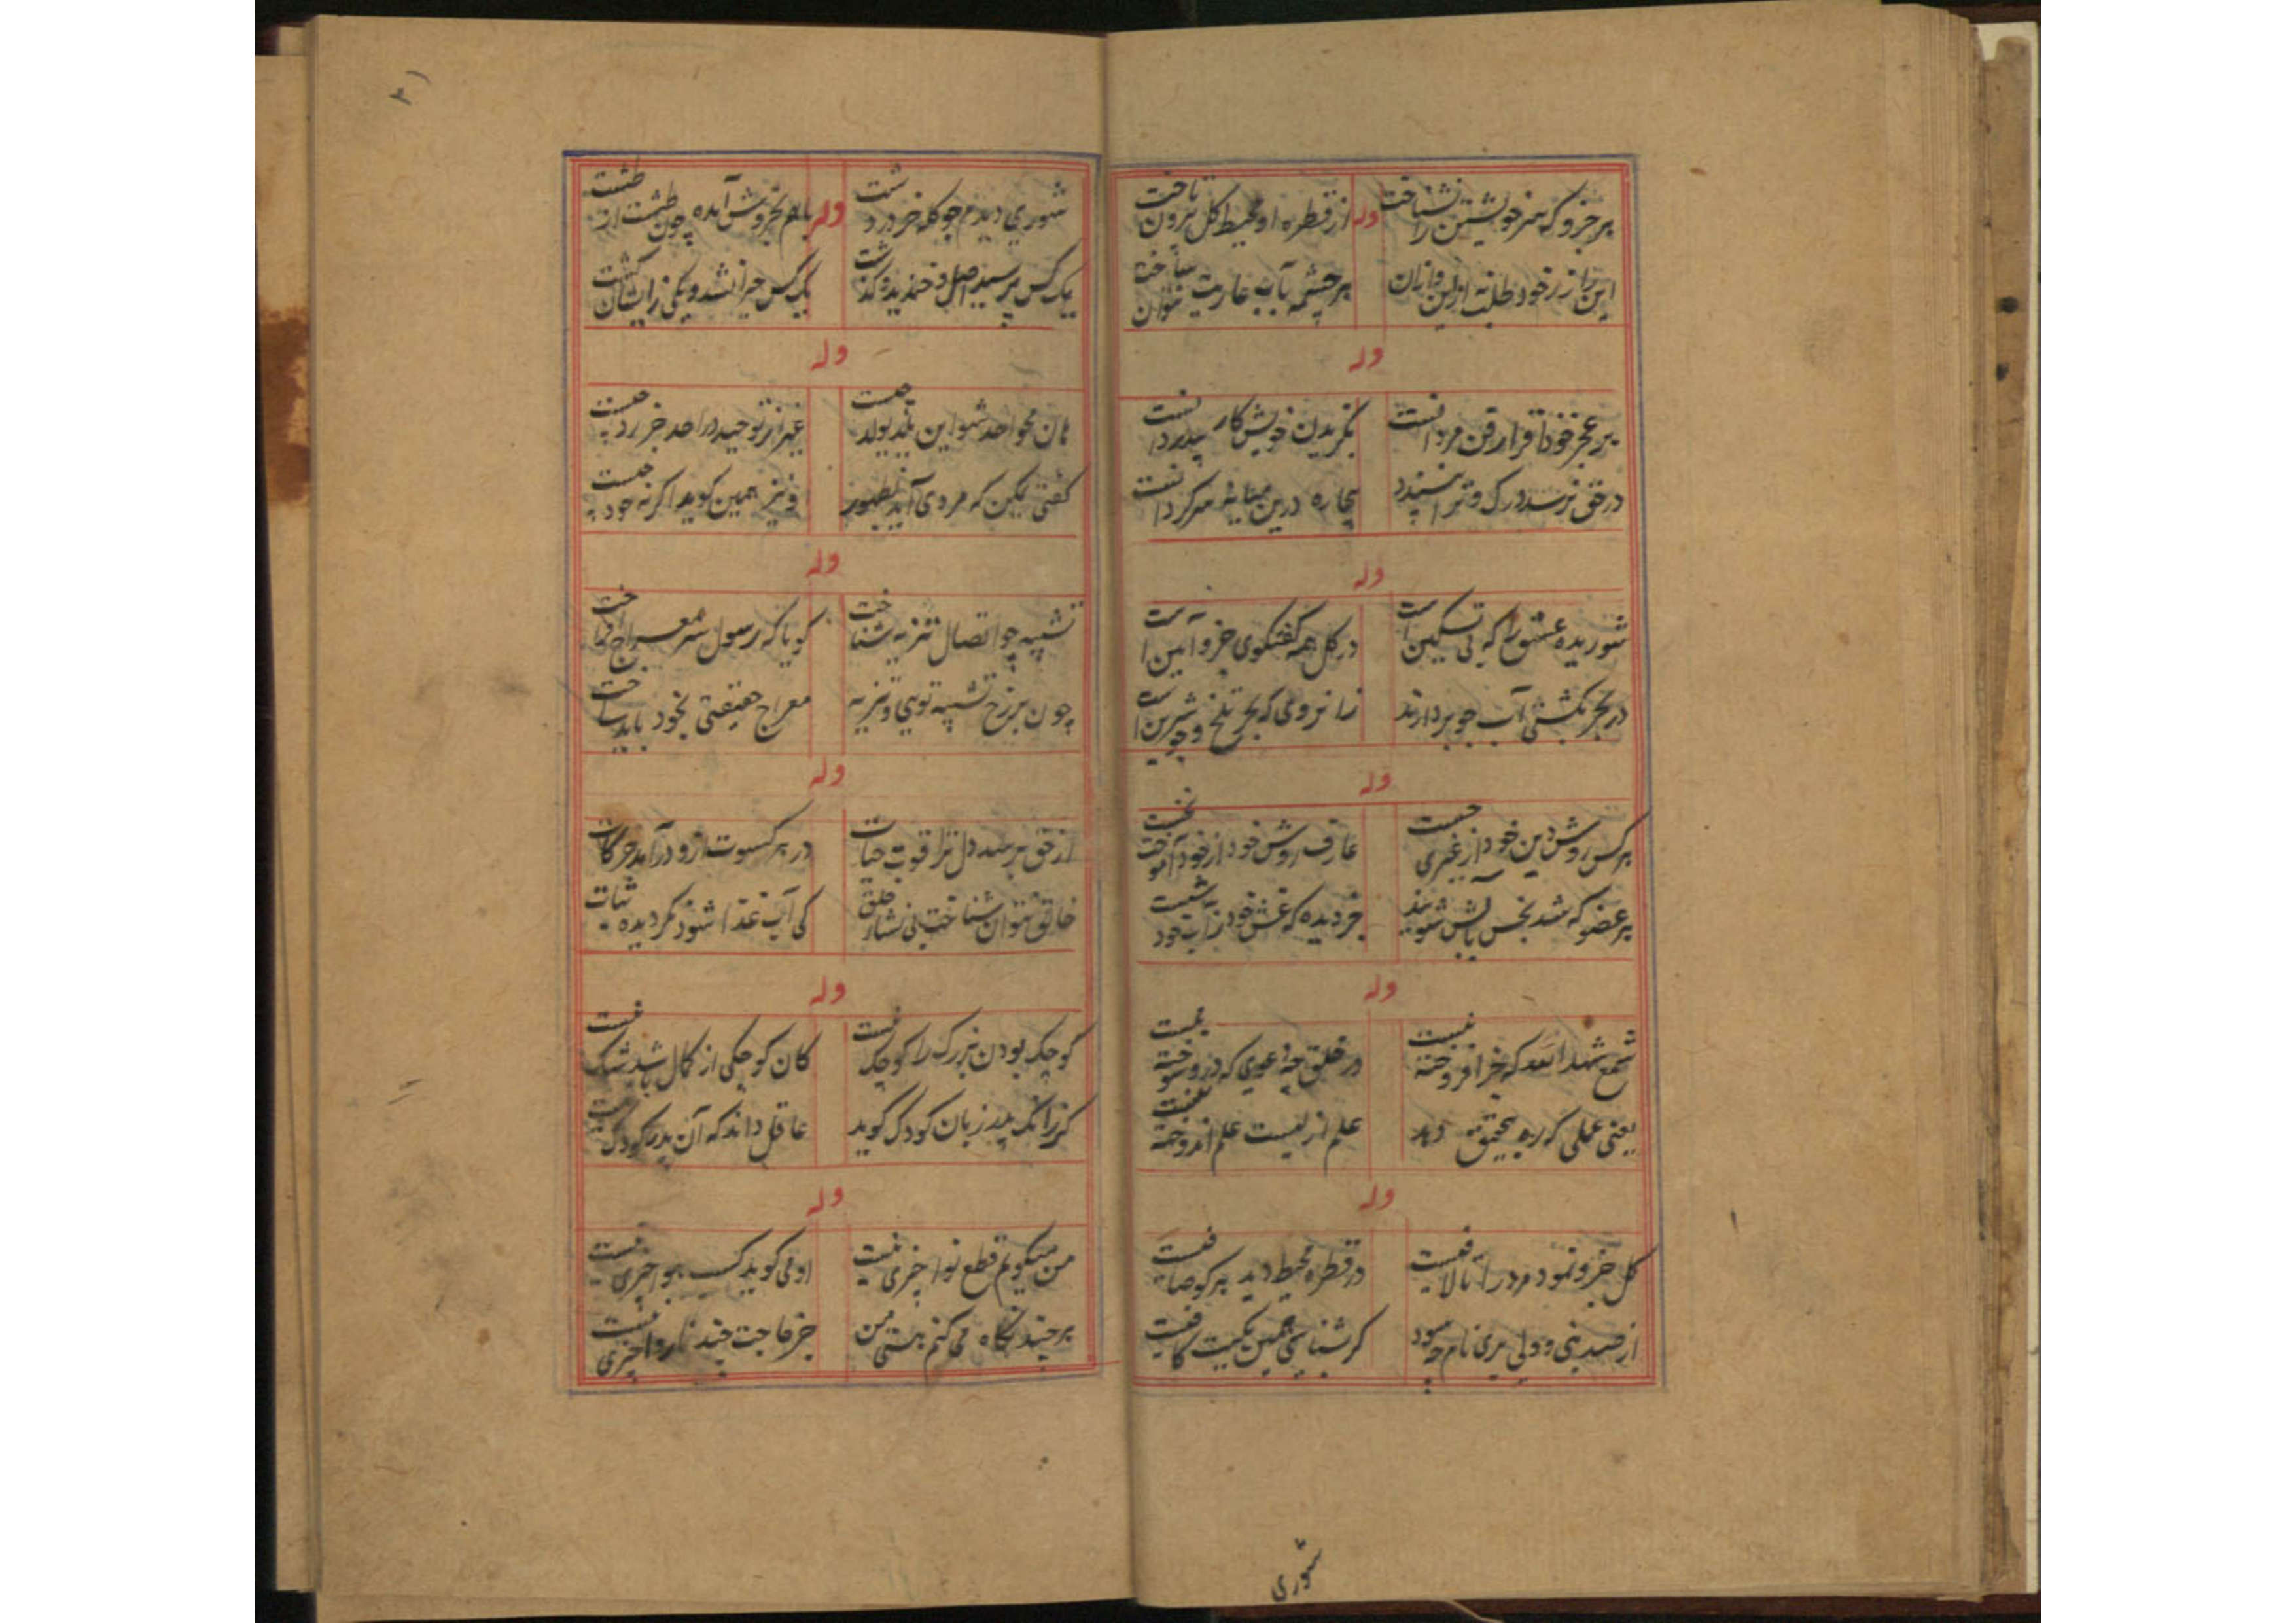 هر جزو که سر خویشتن را نشناخت وله از قطره او محیط کل بیرون تاخت
این راز ز خود طلب نه از این و از آن هر چشمه بآب عاریت نتوان ساخت
وله
بر عجز خود اقرار فن مرد است نگزیدن خویش کار بیدردانست
در حق نرسد درک و ترا نپسندد بیچاره درین میانه سرگردانست
وله
شوریده عشق را که بی تسکین است در کل همه گفتگوی جزو این است
در بحر بکشتی آب جو بردارند زانرو که بحر تلخ و جو شیرین است
وله
هر کس روش دین خود از غیری جست عارف روش خود از خود آموخت نخست
هر عضو که شد نجس بآبش شویند جز دیده که غش خود ز آب خود شست
وله
شمع شهد الله که جز افروخته نیست در خلق چه دعوی که درو سوخته نیست
یعنی عملی که ره بتحقیق دهد علم ازلیست علم اندوخته نیست
وله
کل جزو نمود مرد را تا لافیست در قطره محیط دید هر کو صافیست
از صد نبی و ولی بری نام چه سود گر شناسی همین یکیت کافیست
شوری
شوری دیدم چو کله خر در دشت وله باهم بخروش آمده چون طشت از طشت
یک کس پرسید اصل و خندید و گذشت یک کس حیران شد و یکی زایشان گشت
وله
هان محو احد شو این یلد یولد چیست غیر از توحید در احد جز رد چیست
گفتی یکی که مردی آید بظهور او نیز همین گوید اگر نه خود چیست
وله
تشبیه چو اتصال تنزیه شناخت گویا که رسول سر معراج
چون برزخ تشبیه تویی و تنزیه معراج حقیقتی بخود باید ساخت
وله
از حق برسد دل ترا قوت حیات در هر کسوت ازو درآید حرکات
خالق نتوان شناخت بی نشأ خلق کی آب غذا شود نگردیده نبات
وله
کوچک بودن بزرگ را کوچک نیست کان کوچکی از کمال باشد شک نیست
گر زانک پدر زبان کودک گوید عاقل داند که آن پدر کودک نیست
وله
من میگویم قطع تو ا خری نیست او می گوید کسب بجو اجری نیست
هر چند نگاه می کنم هستی من جز حاجت چند ناروا چیزی نیست